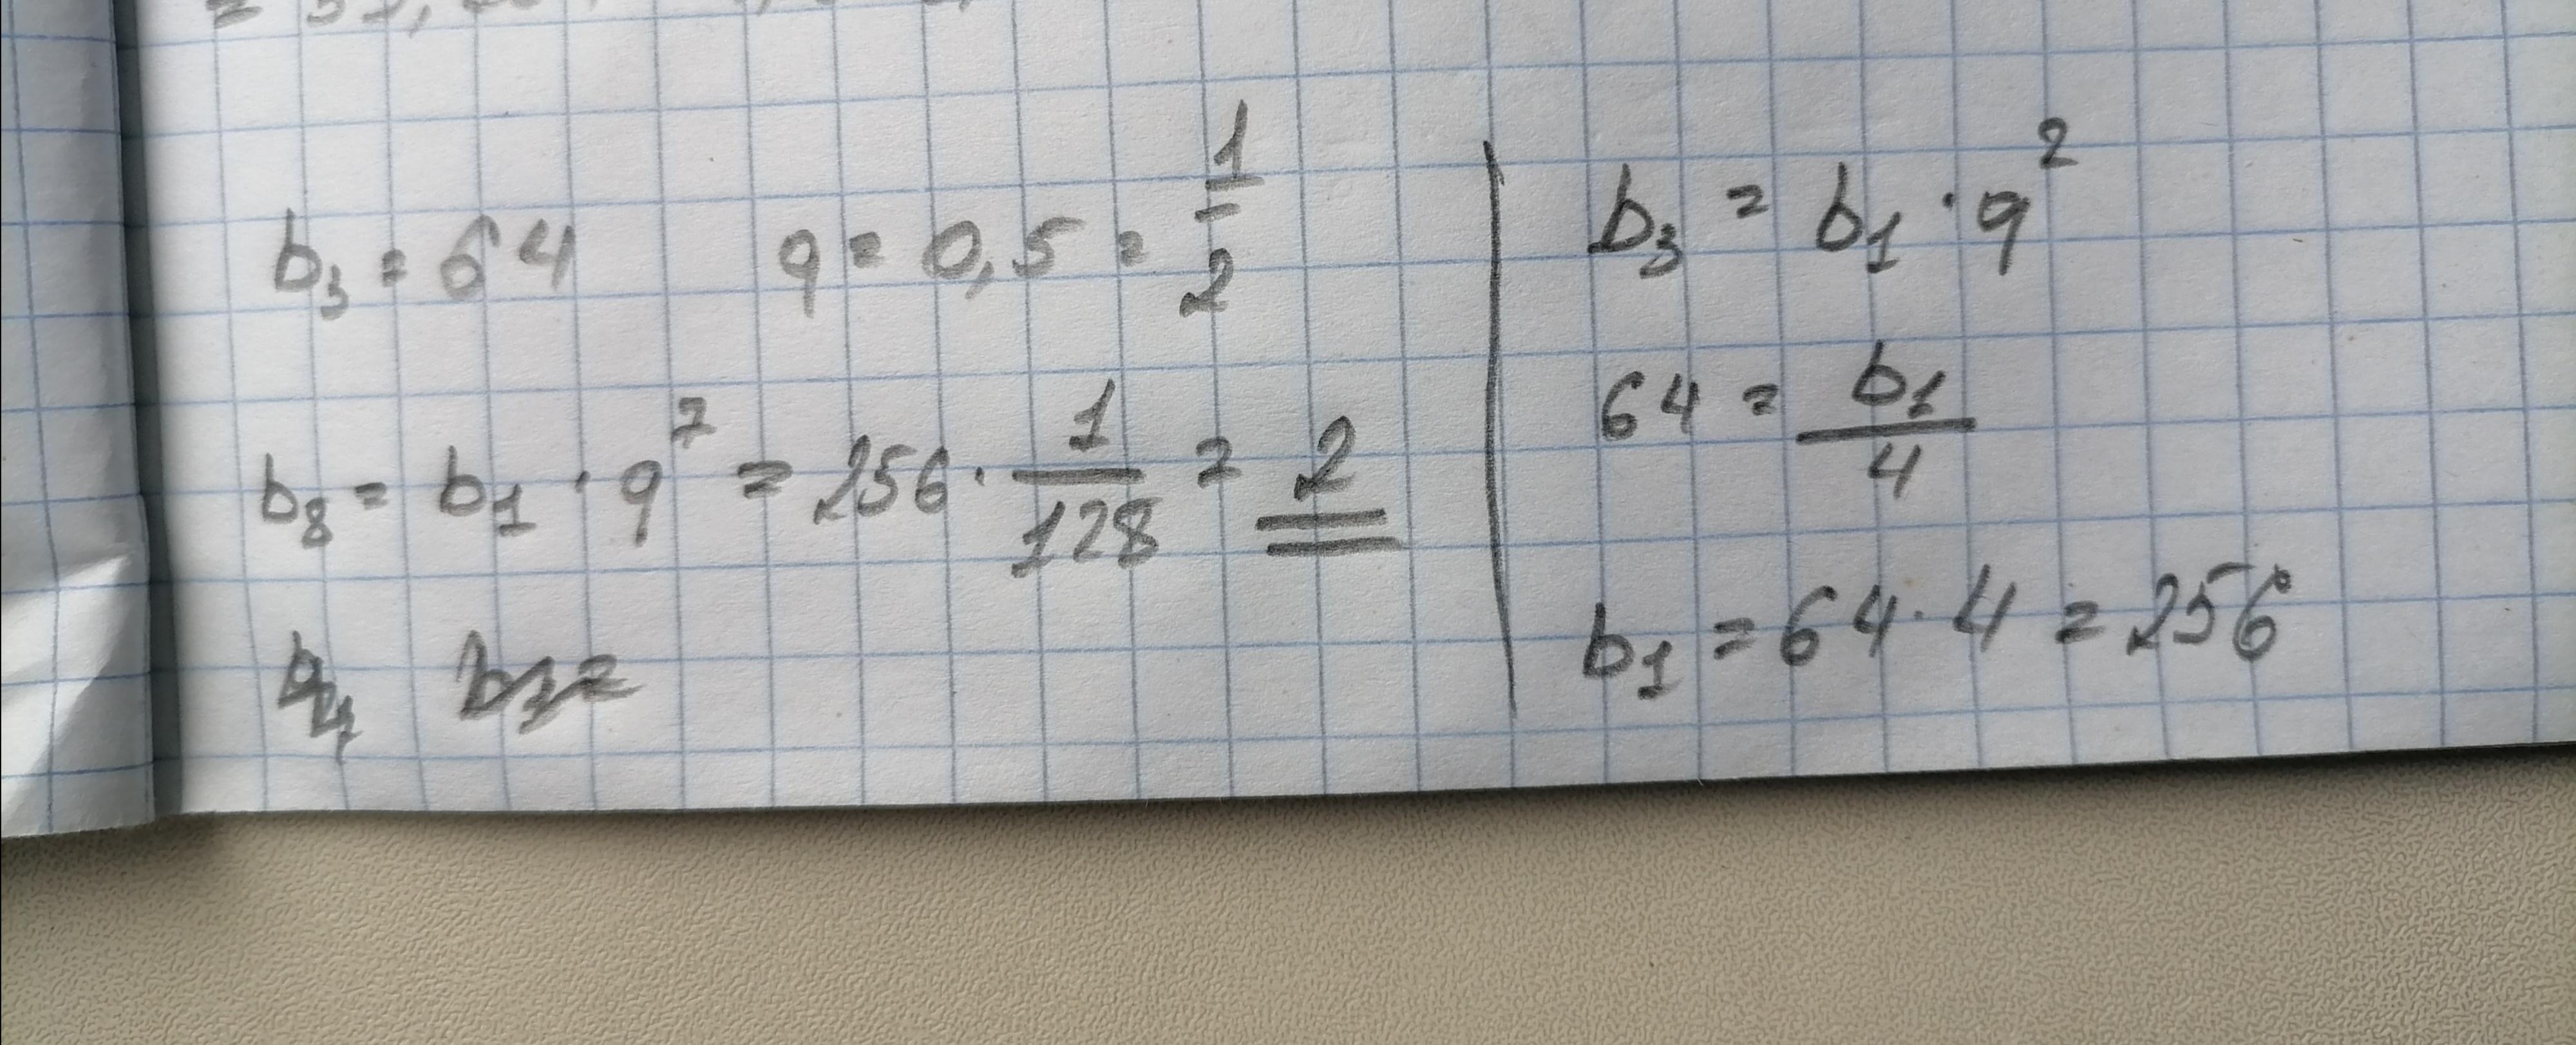 b₃ = 64 q = 0,5 = 1/2
b₈ = b₁ · q⁷ = 256 · 1/128 = 2
b₃ = b₁ · q²
64 = b₁/4
b₁ = 64 · 4 = 256